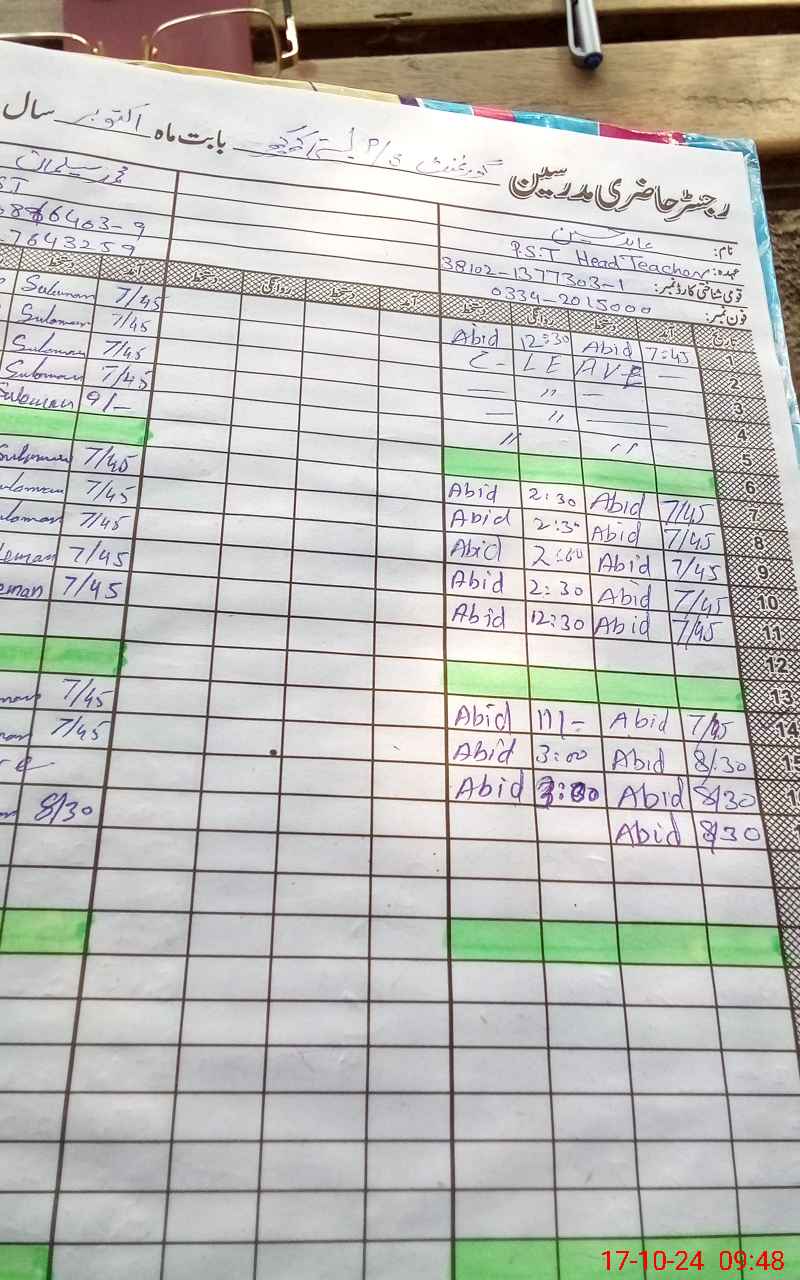 رجسٹر حاضری مدرسین گورنمنٹ P/S بابت ماہ اکتوبر سال
نام: عابد حسین
عہدہ: P.S.T Head Teacher
قومی شناختی کارڈ نمبر: 38102-1377303-1
فون نمبر: 0334-2015000
محمد سلیمان
ST
6403-9
7643259
تاریخ آمد دستخط روانگی دستخط آمد دستخط روانگی دستخط آمد دستخط
1 7:45 Abid 12:30 Abid 7/45 Suleman
2 — AVE LE C- 7/45 Suleman
3 — 〃 — 7/45 Suleman
4 — 〃 — 7/45 Suleman
5 〃 〃 9/- Suleman
6
7 7/45 Abid 2:30 Abid 7/45 Suleman
8 7/45 Abid 2:30 Abid 7/45
9 7/45 Abid 2:00 Abid 7/45
10 7/45 Abid 2:30 Abid 7/45 leman
11 7/45 Abid 12:30 Abid 7/45 eman
12
13
14 7/45 Abid Abid 7/45
15 8/30 Abid 3:00 Abid 7/45
1 8/30 Abid 3:00 Abid
8/30 Abid 8/30
17-10-24 09:48